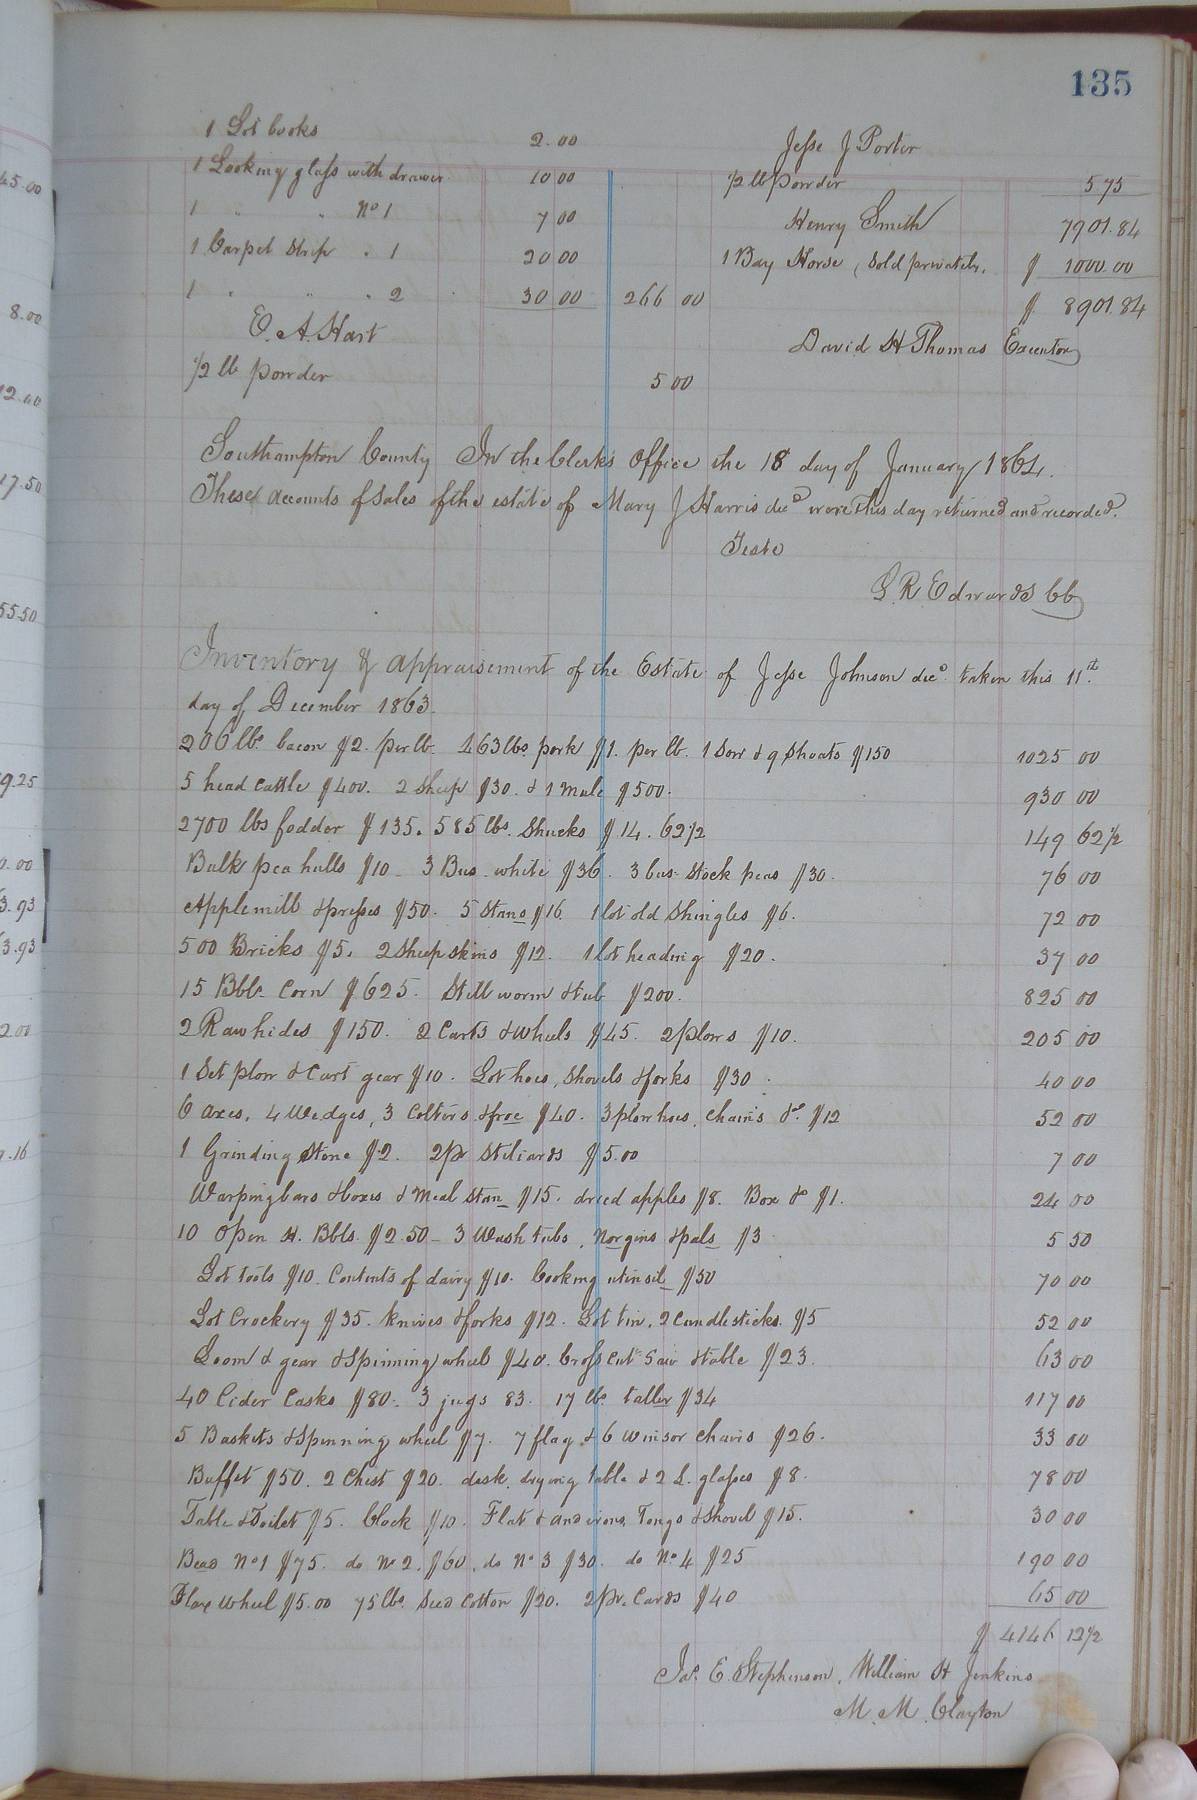 135
1 Lot books 2.00
1 Looking glass with drawer 10 00
1 " " No 1 7 00
1 Carpet Strip " 1 20 00
1 " " " 2 30 00 266 00
E. A. Hart
1/2 lb powder 5 00
Jesse J Porter
1/2 lb Powder 5 75
Henry Smith 7901.84
1 Bay Horse, sold privately, $ 1000.00
$ 8901.84
David H Thomas Executor
Southampton County In the Clerk's Office the 18 day of January 1864.
These accounts of sales of the estate of Mary J Harris decd were this day returned and recorded.
Teste
L R Edwards CC
Inventory & appraisement of the Estate of Jesse Johnson decd taken this 11th
day of December 1863.
206 lbs bacon $2. per lb. 463 lbs pork $1. per lb. 1 Sow & 9 Shoats $150 1025 00
5 head cattle $400. 2 Sheep $30. & 1 Mule $500. 930 00
2700 lbs fodder $135. 585 lbs. Shucks $14.62 1/2 149 62 1/2
Bulk pea hulls $10 - 3 Bus. white $36. 3 bus. Stock peas $30. 76 00
Applemill & presses $50. 5 Stans $16. 1 lot old Shingles $6. 72 00
500 Bricks $5. 2 Sheep skins $12. 1 lot heading $20. 37 00
15 Bbls. Corn $625. Still worm & tub $200. 825 00
2 Raw hides $150. 2 Carts & wheels $45. 2 plows $10. 205 00
1 Set plow & Cart gear $10. Lot hoes, shovels & forks $30. 40 00
6 axes, 4 Wedges, 3 Colters & froe $40. 3 plow hoes, chains &c. $12 52 00
1 Grinding Stone $2. 2 pr Stiliards $5.00 7 00
Warping bars & boxes & Meal Stan $15. dried apples $8. Box &c $1. 24 00
10 Open H. Bbls. $2.50 - 3 Wash tubs, Norgins & pals $3 5 50
Lot tools $10. Contents of dairy $10. Cooking utinsil $50 70 00
Lot Crockery $35. knives & forks $12. Lot tin, 2 candlesticks. $5 52 00
Loom & gear & Spinning wheel $40. Cross cut Saw & table $23. 63 00
40 Cider Casks $80 - 3 jugs $3. 17 lbs tallow $34 117 00
5 Baskets & Spinning wheel $7. 7 flag & 6 winsor chairs $26. 33 00
Buffet $50. 2 Chest $20. desk, drying table & 2 L. glasses $8. 78 00
Table & Toilet $5. Clock $10. Flat & and irons, Tongs & Shovel $15. 30 00
Bead No 1 $75. do No 2. $60, do No 3 $30. do No. 4 $25 190 00
Flax Wheel $5.00 75 lbs. Seed Cotton $20. 2 pr. Cards $40 65 00
$ 4146 12 1/2
Jas. E. Stephenson, William H Jenkins
M. M. Clayton
45.00
8.00
12.00
17.50
55.50
9.25
0.00
3.93
3.93
2.00
9.16